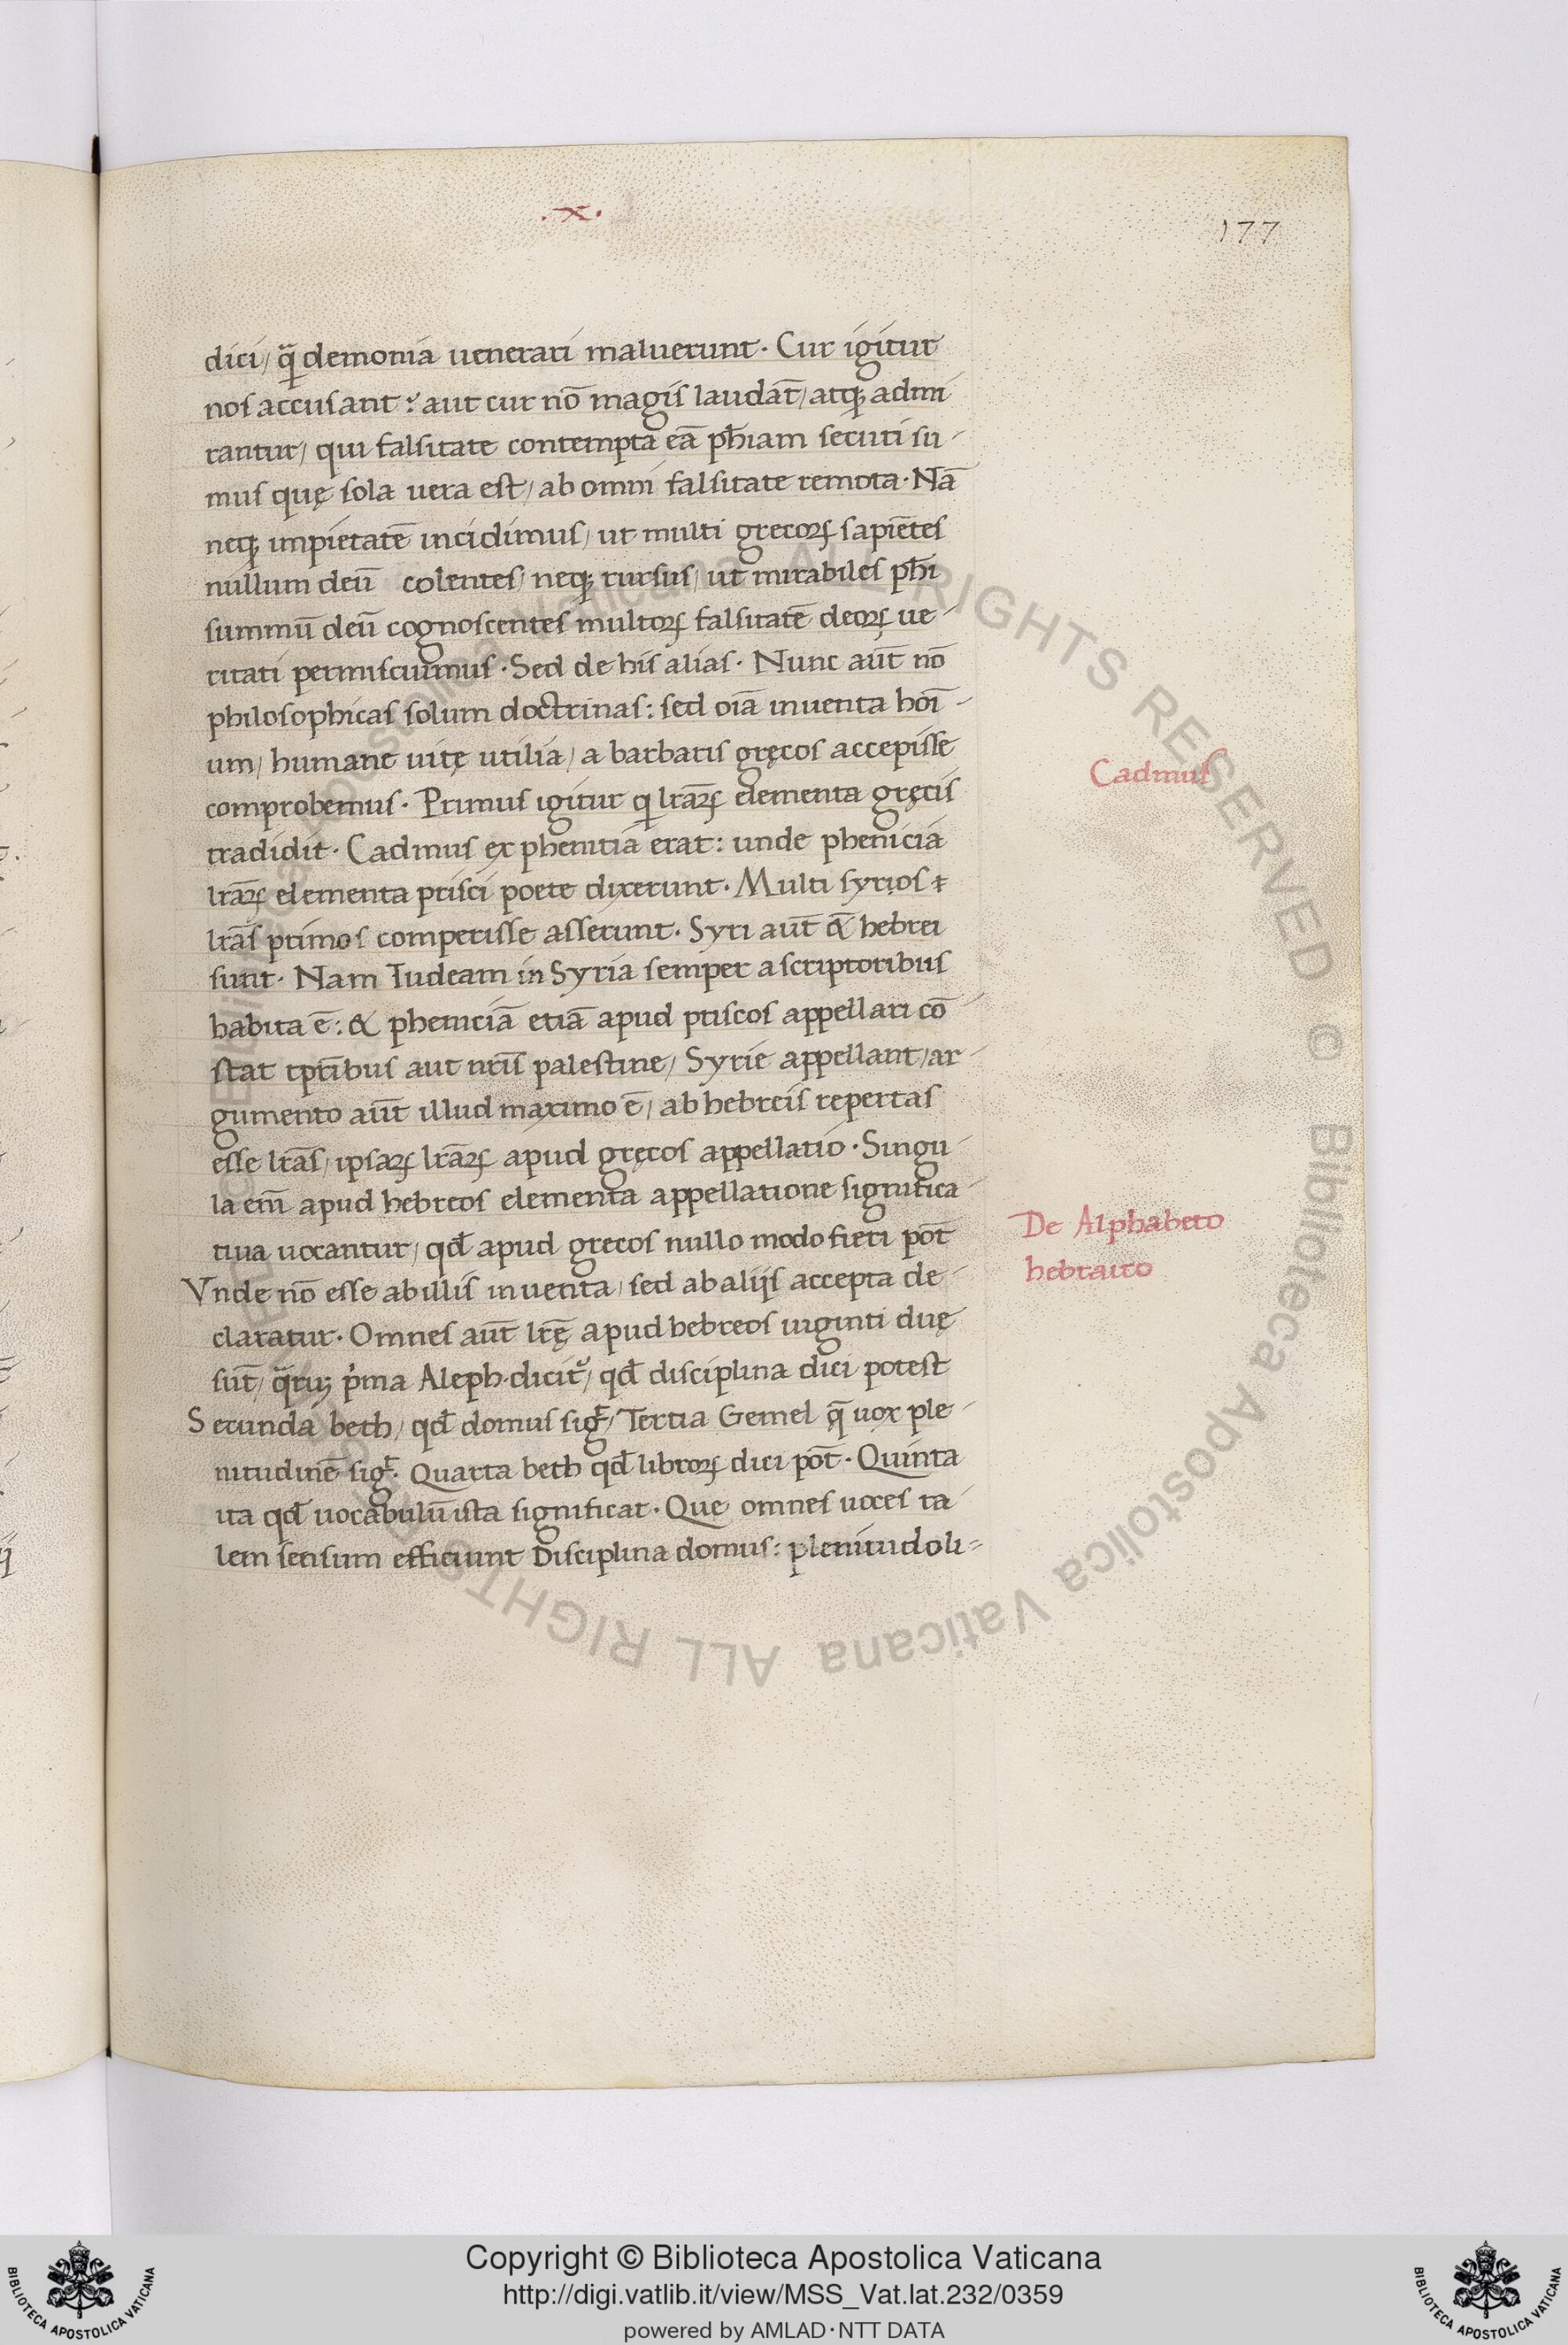 .x.
177
dici/ q̄ demonia uenerari maluerunt. Cur igitur
nos accusant? aut cur nō magis laudāt/ atq; admi
rantur/ qui falsitate contempta eā phīam secuti su-
mus quę sola uera est/ ab omni falsitate remota. Nā
neq; impietatē incidimus/ ut multi grecoꝝ sapiētes
nullum deū colentes/ neq; rursus/ ut mirabiles phī
summū deū cognoscentes multoꝝ falsitatē deoꝝ ue-
ritati permiscuimus. Sed de his alias. Nunc aūt nō
philosophicas solum doctrinas: sed oīa inuenta hoī-
um/ humane uitę utilia/ a barbaris gręcos accepisse
Cadmus
comprobemus. Primus igitur q lr̄aꝝ elementa gręcis
tradidit. Cadmus ex phenitia erat: unde phenicia
lr̄aꝝ elementa prisci poete dixerunt. Multi syrios ⁊
lr̄as primos comperisse asserunt. Syri aūt & hebrei
sunt. Nam Iudeam in Syria semper a scriptoribus
habita ē: & pheniciā etiā apud priscos appellari cō-
stat tpr̄ibus aut nr̄is palestine/ Syrie appellant/ ar-
gumento aūt illud maximo ē/ ab hebreis repertas
esse lr̄as/ ipsaꝝ lr̄aꝝ apud gręcos appellatio. Singu-
la em̄ apud hebreos elementa appellatione significa-
De Alphabeto
hebraico
tiua uocantur/ qđ apud grecos nullo modo fieri pōt
Vnde nō esse ab illis inuenta/ sed ab alijs accepta de-
claratur. Omnes aūt lr̄ę apud hebreos uiginti duę
sūt/ q̄ruꝫ p̍ma Aleph. dicit̉/ qđ disciplina dici potest
Secunda beth/ qđ domus sigͭ/ Tertia Gemel q̄ uox ple-
nitudinē sigͭ. Quarta beth qđ libroꝝ dici pōt. Quinta
uta qđ uocabulū ista significat. Que omnes uoces ta-
lem sensum efficiunt Disciplina domus: plenitudo li=
Copyright © Biblioteca Apostolica Vaticana
http://digi.vatlib.it/view/MSS_Vat.lat.232/0359
powered by AMLAD·NTT DATA